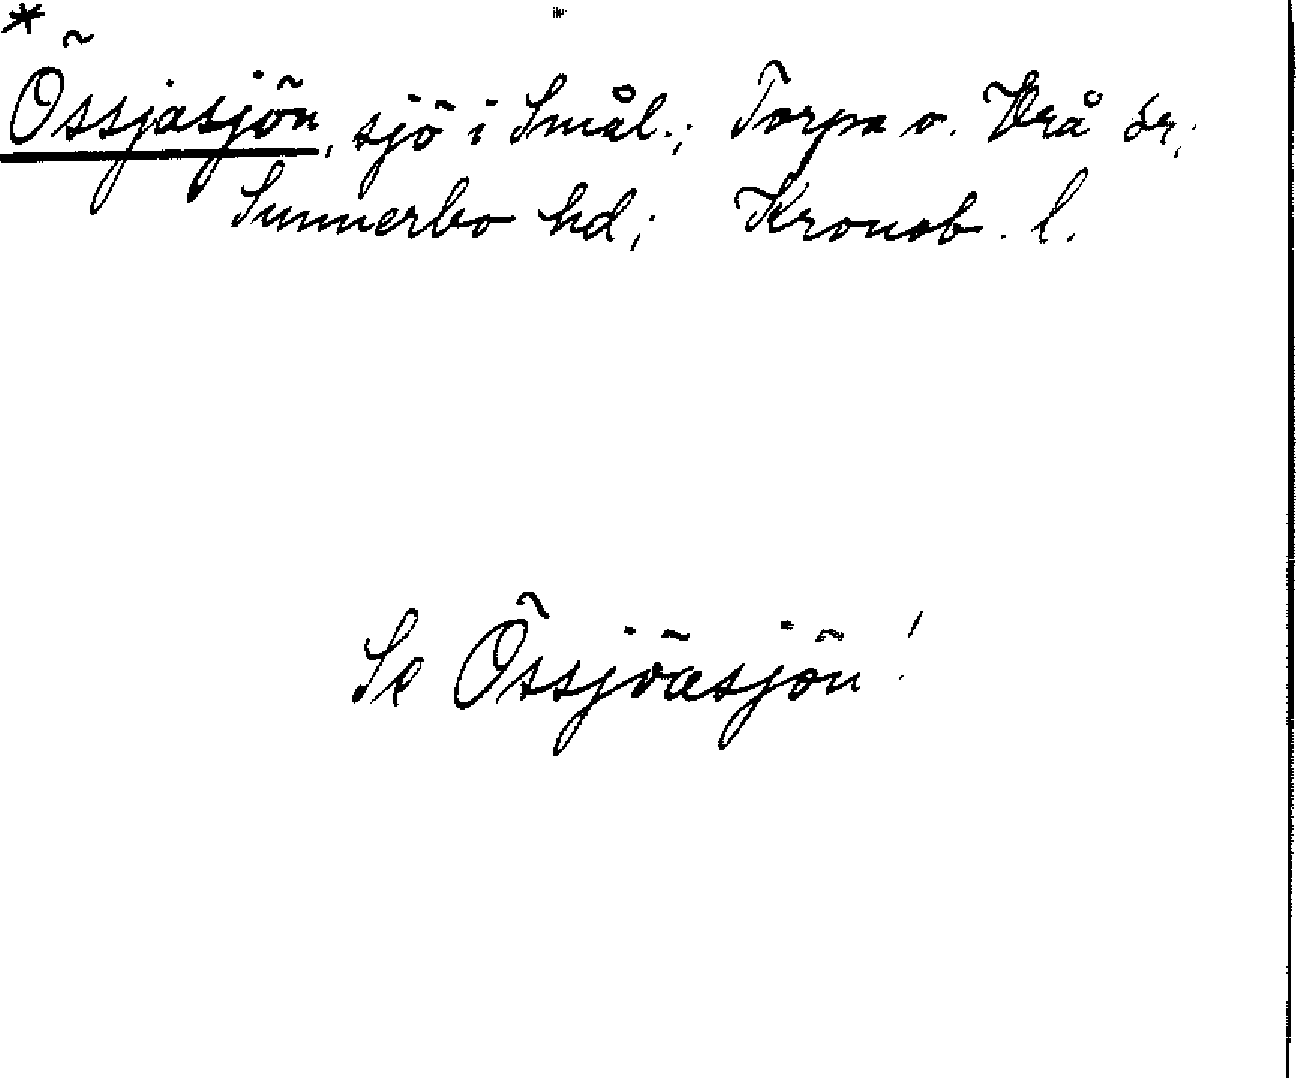 *
Össjasjön, sjö i Smål.; Torpa o. Vrå sr,;
Sunnerbo hd; Kronob. l.
Se Össjöasjön!